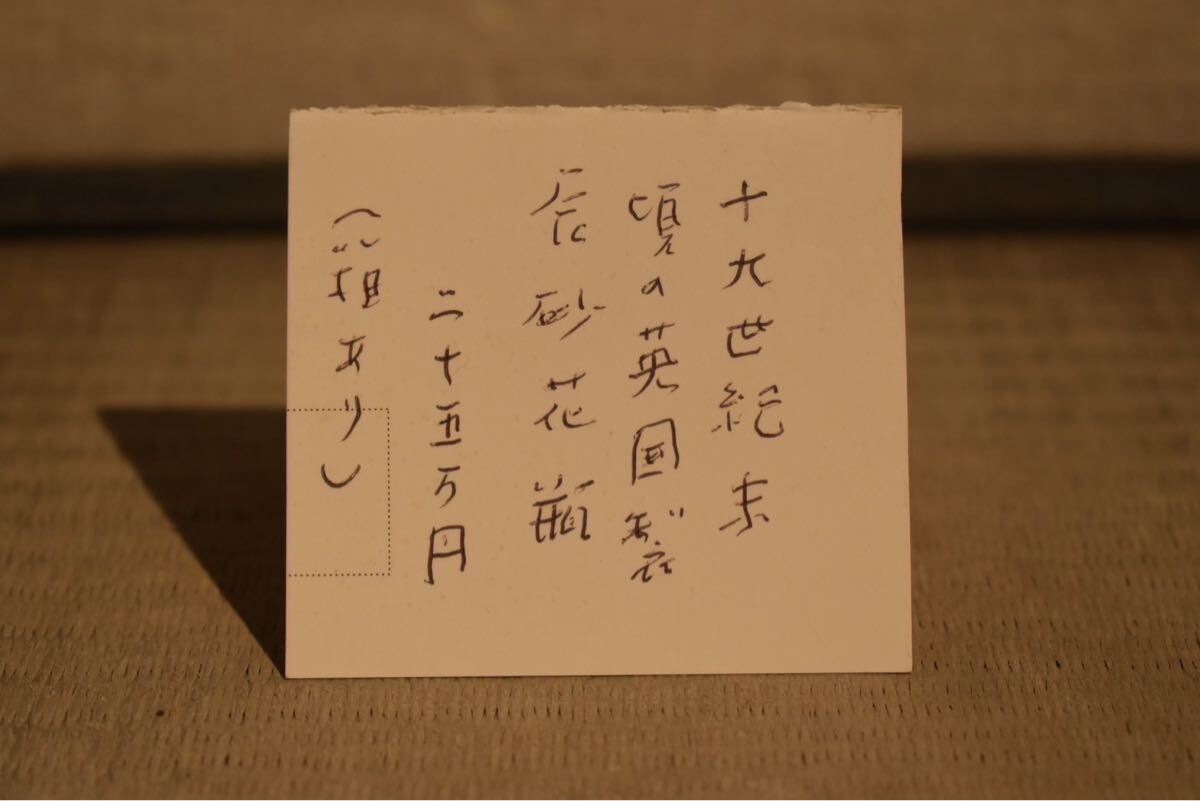 十九世紀末
頃の英国製
辰砂花瓶
二十五万円
（箱あり）